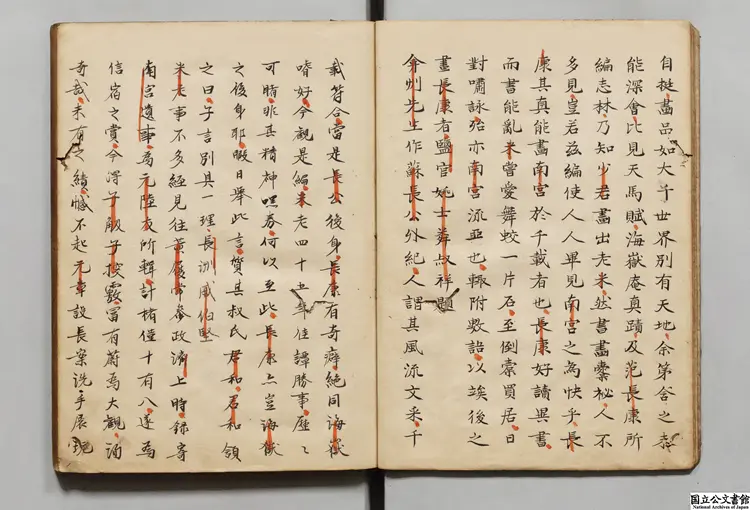 自挺畫品如大千世界別有天地余第舍之森
能深會比見天馬賦海嶽庵真蹟及范長康所
編志林乃知少君畫出老米然書畫橐秘人不
多見皇君茲編使人人畢見南宮之為快乎長
康其真能畫南宮於千載者也長康好讀異書
而書能亂米嘗愛舞蛟一片石至倒橐買居日
對嘯詠殆亦南宮流亞也輙附數語以竢後之
畫長康者鹽官姚士粦叔祥題
弇州先生作蘇長公外紀人謂其風流文采千
載符合當是長公後身長康有奇癖絕同海嶽
嗜好今觀是編米老四十五年佳譚勝事歷〻
可睹非其精神嘿劵何以至此長康亦豈海嶽
之後身耶暇日舉此言質其叔氏君和君和領
之曰子言別具一理長洲戚伯堅
米老事不多經見往黃履常參政滸上時錄寄
南宮遺事為元陸友所輯計楮僅十有八遂為
信宿之賞今得子敏子按覈富有蔚為大觀洵
奇哉未有之績憾不起元章設長案洗手展覽
国立公文書館
National Archives of Japan